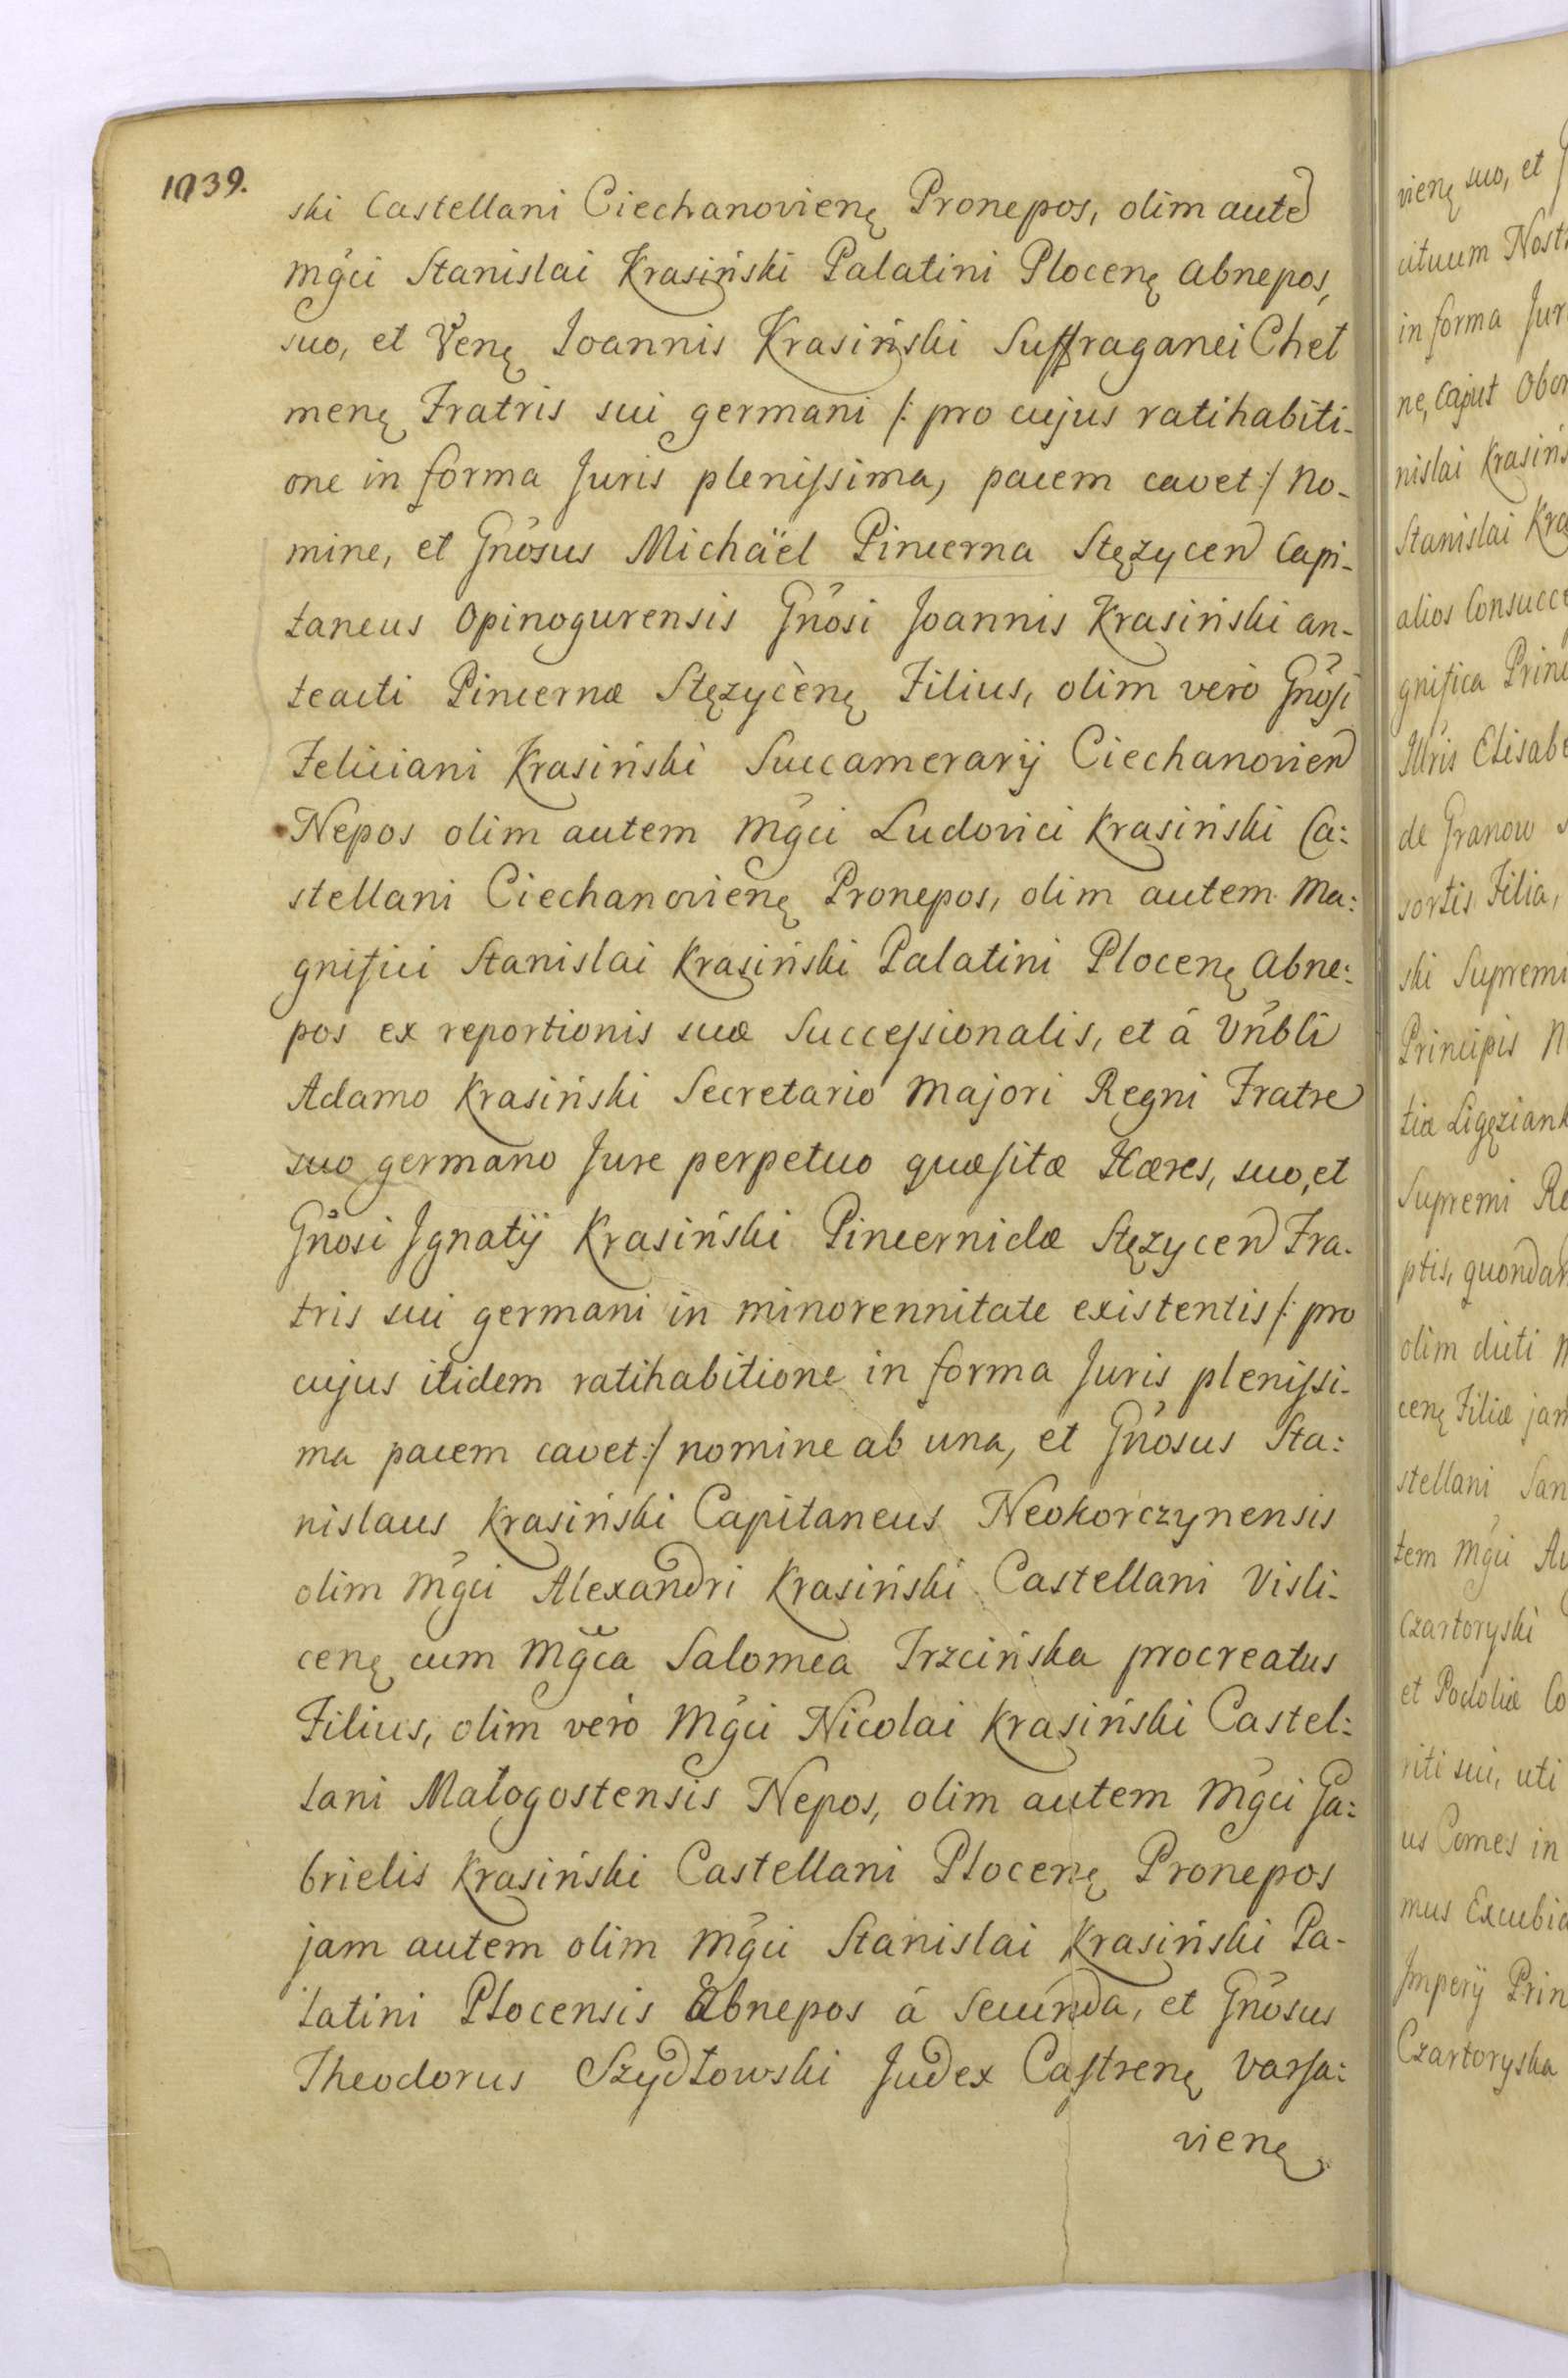 1739.
ski Castellani Ciechanovienę Pronepos, olim aute
Mgci Stanislai Krasiński Palatini Plocenę Abnepos,
suo, et Venę Joannis Krasiński Suffraganei Cheł
menę Fratris sui germani /: pro cujus ratihabiti-
one in forma Juris plenissima, pacem cavet :/ no-
mine, et Gnosus Michaël Pincerna Stęzycen Capi-
taneus Opinogurensis Gnosi Joannis Krasiński an-
teacti Pincernæ Stęzycenę Filius, olim verò Gnosi
Feliciani Krasiński Succamerarij Ciechanovien
Nepos olim autem Mgci Ludovici Krasiński Ca:
stellani Ciechanovienę Pronepos, olim autem Ma:
gnifici Stanislai Krasiński Palatini Plocenę Abne:
pos ex reportionis suæ Successionalis, et â Vnbli
Adamo Krasiński Secretario Majori Regni Fratre
suo germano Jure perpetuo quæsitæ Hæres, suo, et
Gnosi Ignatij Krasiński Pincernidæ Stęzycen Fra-
tris sui germani in minorennitate existentis /: pro
cujus itidem ratihabitione in forma Juris plenissi-
ma pacem cavet :/ nomine ab una, et Gnosus Sta:
nislaus Krasiński Capitaneus Neokorczynensis
olim Mgci Alexandri Krasiński Castellani Visli-
cenę cum Mgca Salomea Trzcińska procreatus
Filius, olim verò Mgci Nicolai Krasiński Castel:
lani Małogostensis Nepos, olim autem Mgci Ga:
brielis Krasiński Castellani Plocenę Pronepos
jam autem olim Mgci Stanislai Krasiński Pa-
latini Plocensis Abnepos â Secunda, et Gnosus
Theodorus Szydłowski Judex Castrenę Varsa:
vienę
vienę suo, et
cituum Nost
in forma Jur
ne, caput Obor
nislai Krasińs
Stanislai Kra
alios Consucce
gnifica Princ
Illris Elisabe
de Granow s
sortis Filia,
ski Supremi
Principis M
tia Ligęziank
Supremi Re
ptis, quondam
olim dicti M
cenę Filiæ jam
stellani San
tem Mgci Au
Czartoryski
et Podoliæ Co
riti sui, uti
us Comes in
mus Excubia
Imperij Prin
Czartoryska